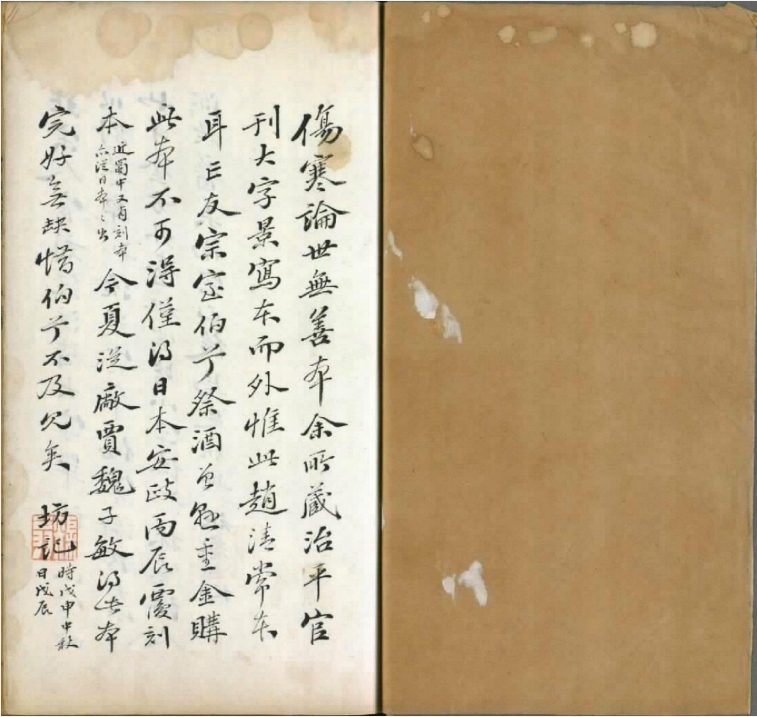 傷寒論世無善本余所藏治平官
刊大字景寫本而外惟此趙清常本
耳亡友宗室伯兮祭酒曾懸重金購
此本不可得僅得日本安政丙辰覆刻
本
近蜀中又有刻本
亦從日本〻出
今夏從廠賈魏子敏得此本
完好無缺惜伯兮不及見矣 坊記
時戊申中秋
日戊辰